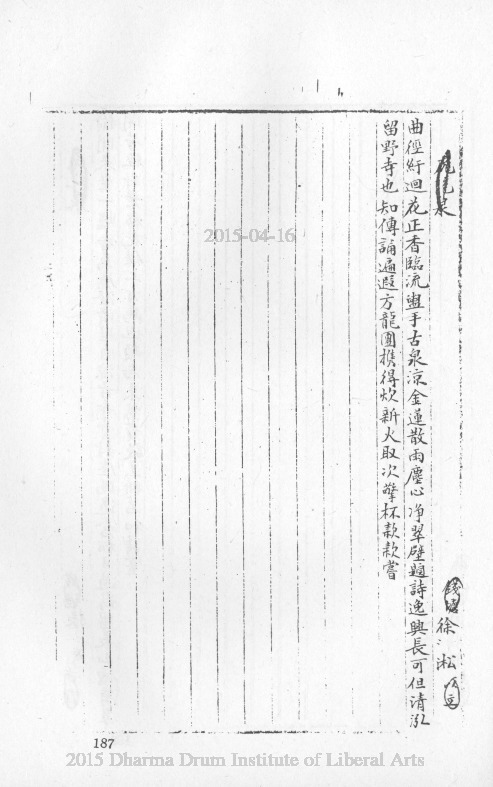 泉
錢塘徐淞
曲徑紆迴花正香臨流盥手古泉涼金蓮散雨塵心净翠壁題詩逸興長可但清泓
留野寺也知傳誦遍遐方龍團携得炊新火取次擎杯款款嘗
2015-04-16
187
2015 Dharma Drum Institute of Liberal Arts